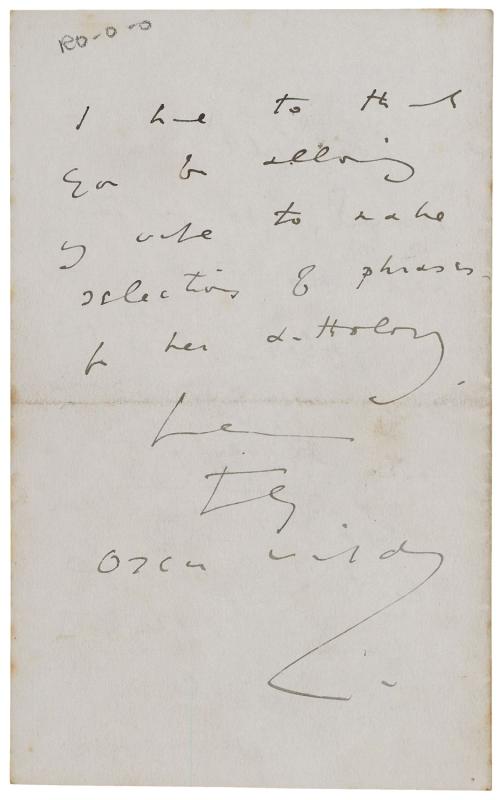 RO-0-0
I have to thank
you for allowing
my wife to make
selections of phrases
for her anthology.
Truly
Oscar Wilde